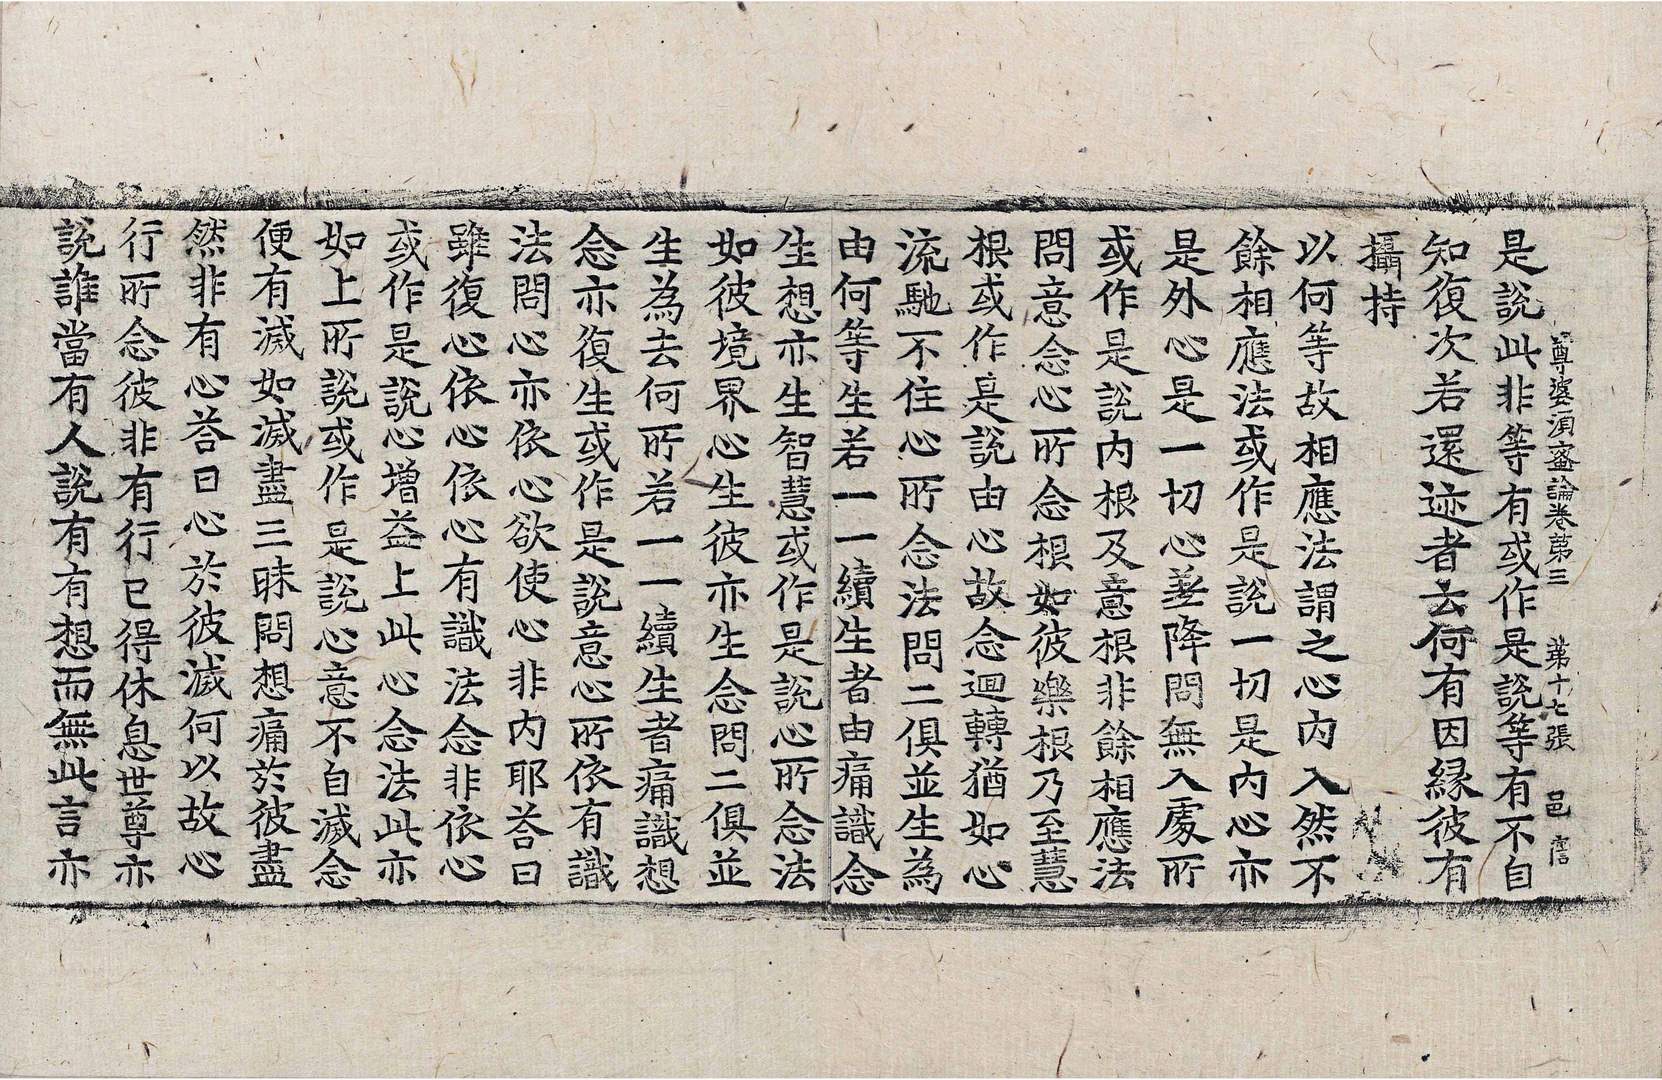 尊婆湏蜜論卷第三 第十七張 邑
是說此非等有或作是說等有不自
知復次若還迹者去何有因縁彼有
攝持
以何等故相應法謂之心内入然不
餘相應法或作是說一切是内心亦
是外心是一切心善降問無入處所
或作是說内根及意根非餘相應法
問意念心所念根如彼樂根乃至慧
根或作是說由心故念迴轉猶如心
流馳不住心所念法問二俱並生為
由何等生若一一續生者由痛識念
生想亦生智慧或作是說心所念法
如彼境界心生彼亦生念問二俱並
生為去何所若一一續生者痛識想
念亦復生或作是說意心所依有識
法問心亦依心欲使心非内耶荅曰
雖復心依心依心有識法念非依心
或作是說心增益上此心念法此亦
如上所說或作是說心意不自滅念
便有滅如滅盡三昧問想痛於彼盡
然非有心荅曰心於彼滅何以故心
行所念彼非有行已得休息世尊亦
說誰當有人說有有想而無此言亦